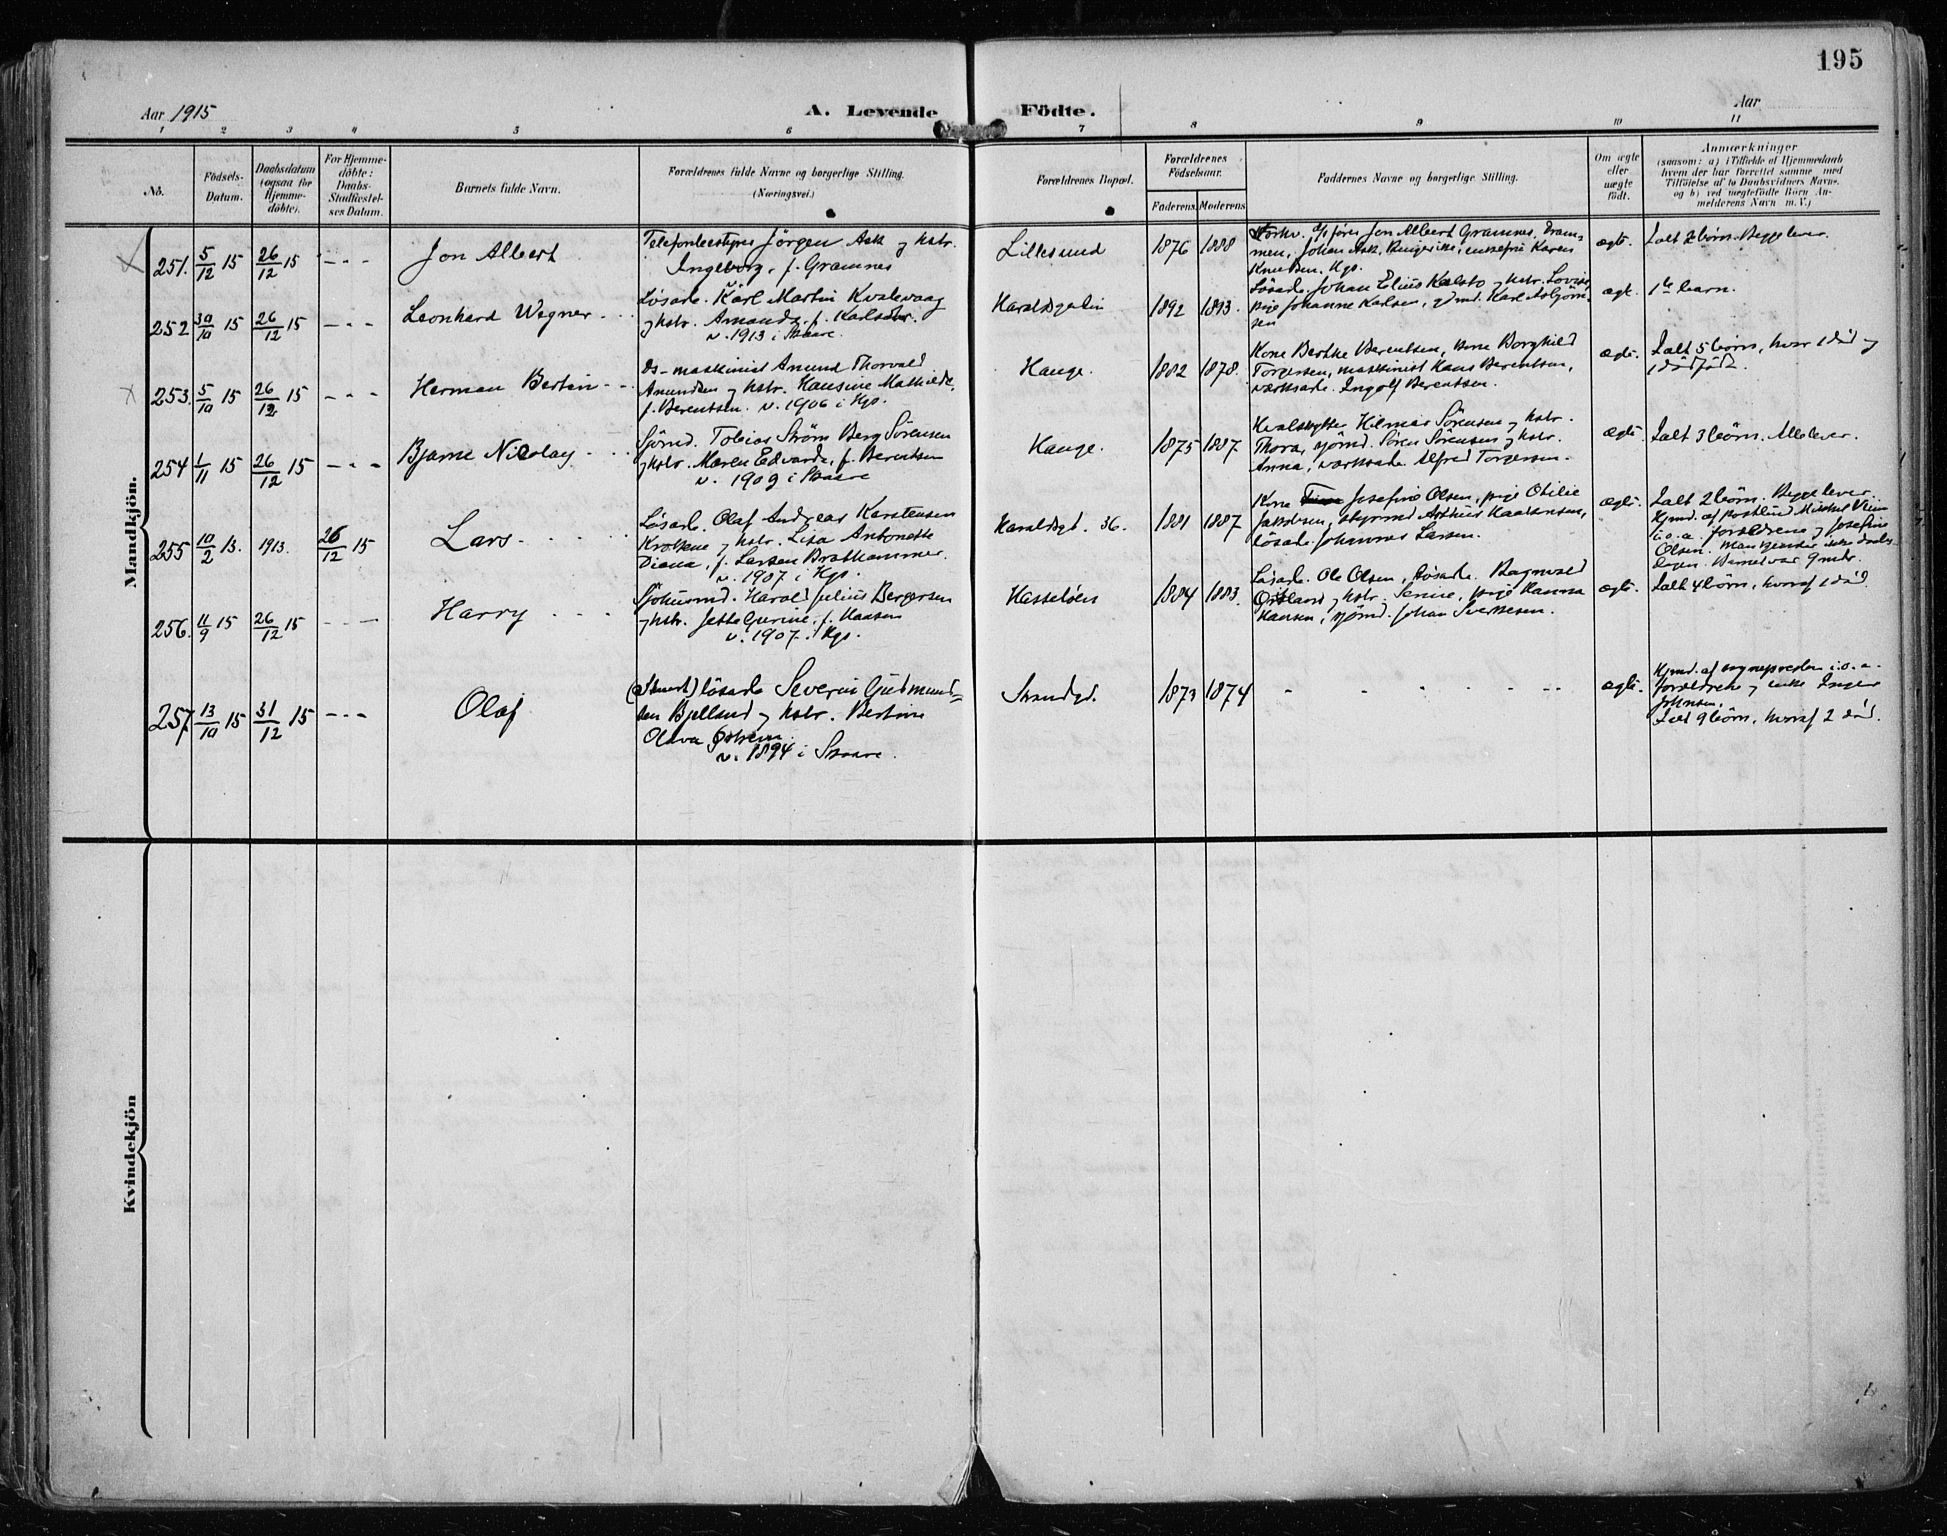 195
Aar 1915
A. Levende Födte.
Aar
1 2 3 4 5 6 7 8 9 10 11
No.
Födsels-
Datum.
Daabsdatum
(ogsaa for
Hjemme-
döbte).
For Hjemme-
döbte:
Daabs-
Stadfæstel-
ses Datum.
Barnets fulde Navn.
Forældrenes fulde Navne og borgerlige Stilling.
(Næringsvei.)
Forældrenes Bopæl.
Forældrenes
Födselsaar.
Faderens. Moderens.
Faddernes Navne og borgerlige Stilling.
Om ægte
eller
uægte
født.
Anmærkninger
(saasom: a) i Tilfælde af Hjemmedaab
hvem der har forrettet samme med
Tilföielse af to Daabsvidners Navne,
og b) ved uægtefödte Börn An-
melderens Navn m. V.)
Mandkjön.
251. 5/12 15 26/12 15 - - -
Jon Albert
Telefonbestyrer Jörgen Ask og hstr.
Ingeborg, f. Gramnes
Lillesund
1876 1888
Jon Albert Gramnes, Dram-
men, Johan Ask, Ringerike, enkefrue Karen
Knudsen, Hgs.
ægte.
Ialt 2 börn. Begge lever.
252 30/10 15 26/12 15 - - -
Leonhard Wegner
Løsarb. Karl Martin Kvalevaag
og hstr. Amanda, f. Karlsdtr.
v. 1913 i Skaare
Haraldsgaten
1892 1893.
Løsarb. Johan Elius Kalstø og hstr. Lovise,
pige Johanne Karlsen, Karl Asbjörn-
sen
ægt.
1te barn.
253. 5/10 15 26/12 15 - - -
Herman Bertin
Ds-maskinist Amund Thorvald
Amundsen og hstr. Hansine Mathilde,
f. Berentsen. v. 1906 i Hgs.
Hauge.
1882 1878.
Kone Berthe Berentsen, Borghild
Torgersen, maskinist Hans Berentsen,
værksarb. Ingolf Berentsen.
ægte.
Ialt 5 börn, hvor 1 död og
1 dödfødt.
254 1/11 15 26/12 15 - - -
Bjarne Nicolay
Sjömd. Tobias Strøm Berg Sörensen
og hstr. Maren Edvarda, f. Berentsen
v. 1909 i Skaare
Hauge.
1875 1887
Hvalskytter Hilmar Sörensen og hstr.
Thora, sjömd. Sören Sörensen og hstr.
Anna, værksarb. Alfred Torgersen.
ægte.
Ialt 3 börn. Alle lever.
255 10/2 13. 1913. 26/12 15
Lars
Løsarb. Olaf Andreas Karstensen
og hstr. Lisa Antonette
Diana, f. Larsen Brathammer.
v. 1907 i Hgs.
Haraldsgt. 36.
1881 1887
Kone Josefine Olsen, pige Otilie
Jakobsen, styrmd Arthur Haakonsen,
løsarb. Johannes Larsen.
ægte.
Ialt 2 börn. Begge lever.
Hjmd. af
i.o.a. forældrene og Josefine
Olsen. Man husker ikke daabs-
dagen. Barnet var 9 mdr.
256. 11/9 15 26/12 15 - - -
Harry
Harald Julius Bergersen
og hstr. Jette Gurine, f. Hansen
v. 1907 i Hgs.
Hasseløen
1884 1883.
Løsarb. Ole Olsen, løsarb. Ragnvald
Østland og hstr. Serine, pige Hanna
Hansen, sjömd. Johan Sverkesen.
ægte.
Ialt 4 börn, hvoraf 1 död.
257. 13/10 15 31/12 15 - - -
Olaf
løsarb. Severin Gudmund-
sen Bjelland og hstr. Bertine
Olava Østrem.
v. 1894 i Skaare.
Strandgd.
1873 1874
- - - - - -
ægte.
Hjmd. af sognepresten i.o.a.
forældrene og enke Inger
Johnsen.
Ialt 9 börn, hvoraf 2 död.
Kvindekjön